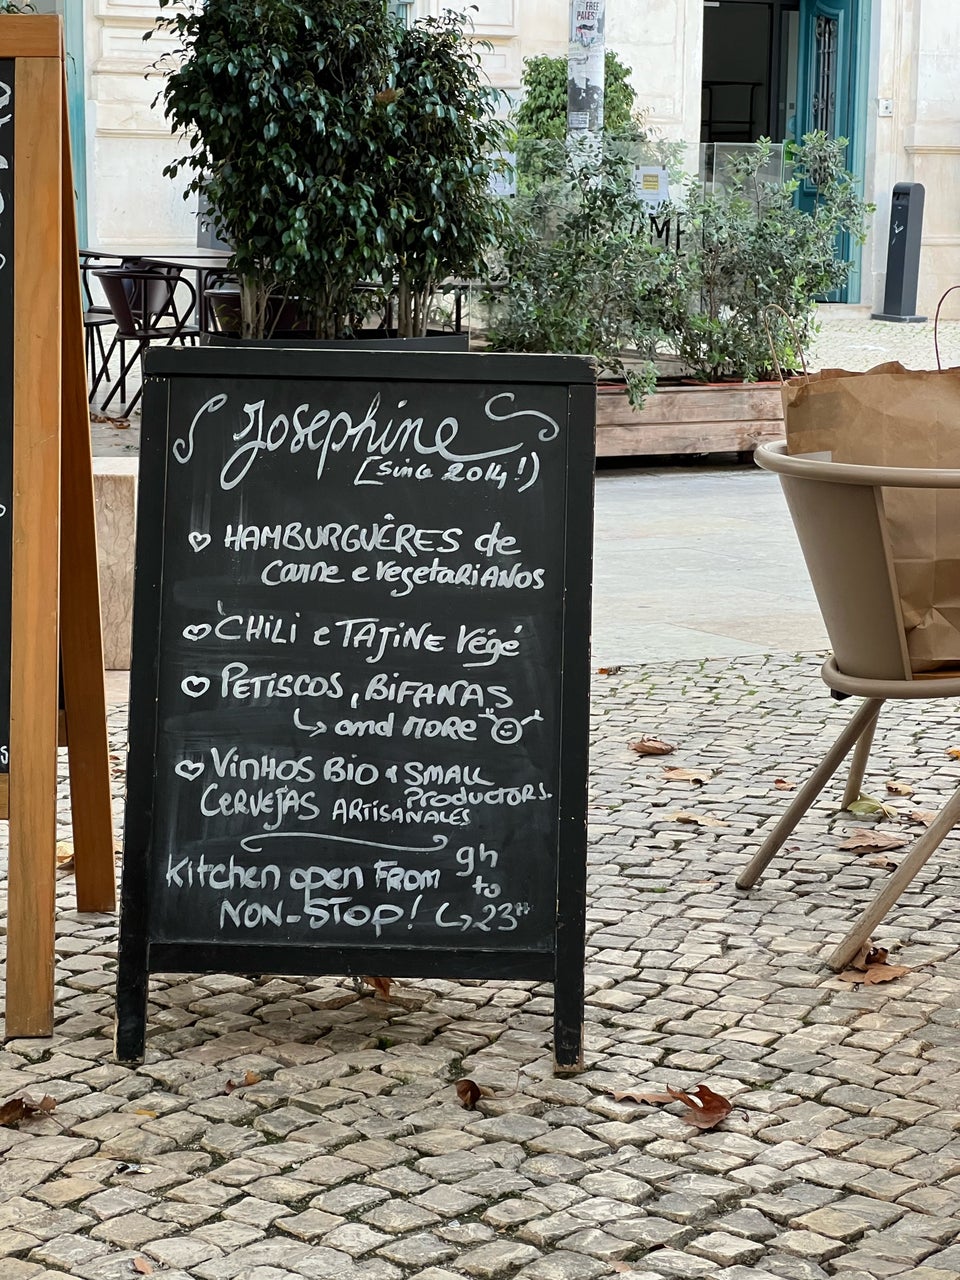 FREE
PALES
Josephine
(Since 2014!)
HAMBURGUÊRES de
carne e vegetARiANOS
CHiLi e TAJiNE Végé
PETiSCOS, BiFANAS
and MORE
ViNHOS BiO & SMALL
PRODUCTORS.
CERVEJAS ARTiSANALES
Kitchen open FROM 9h
to
NON-STOP! 23H